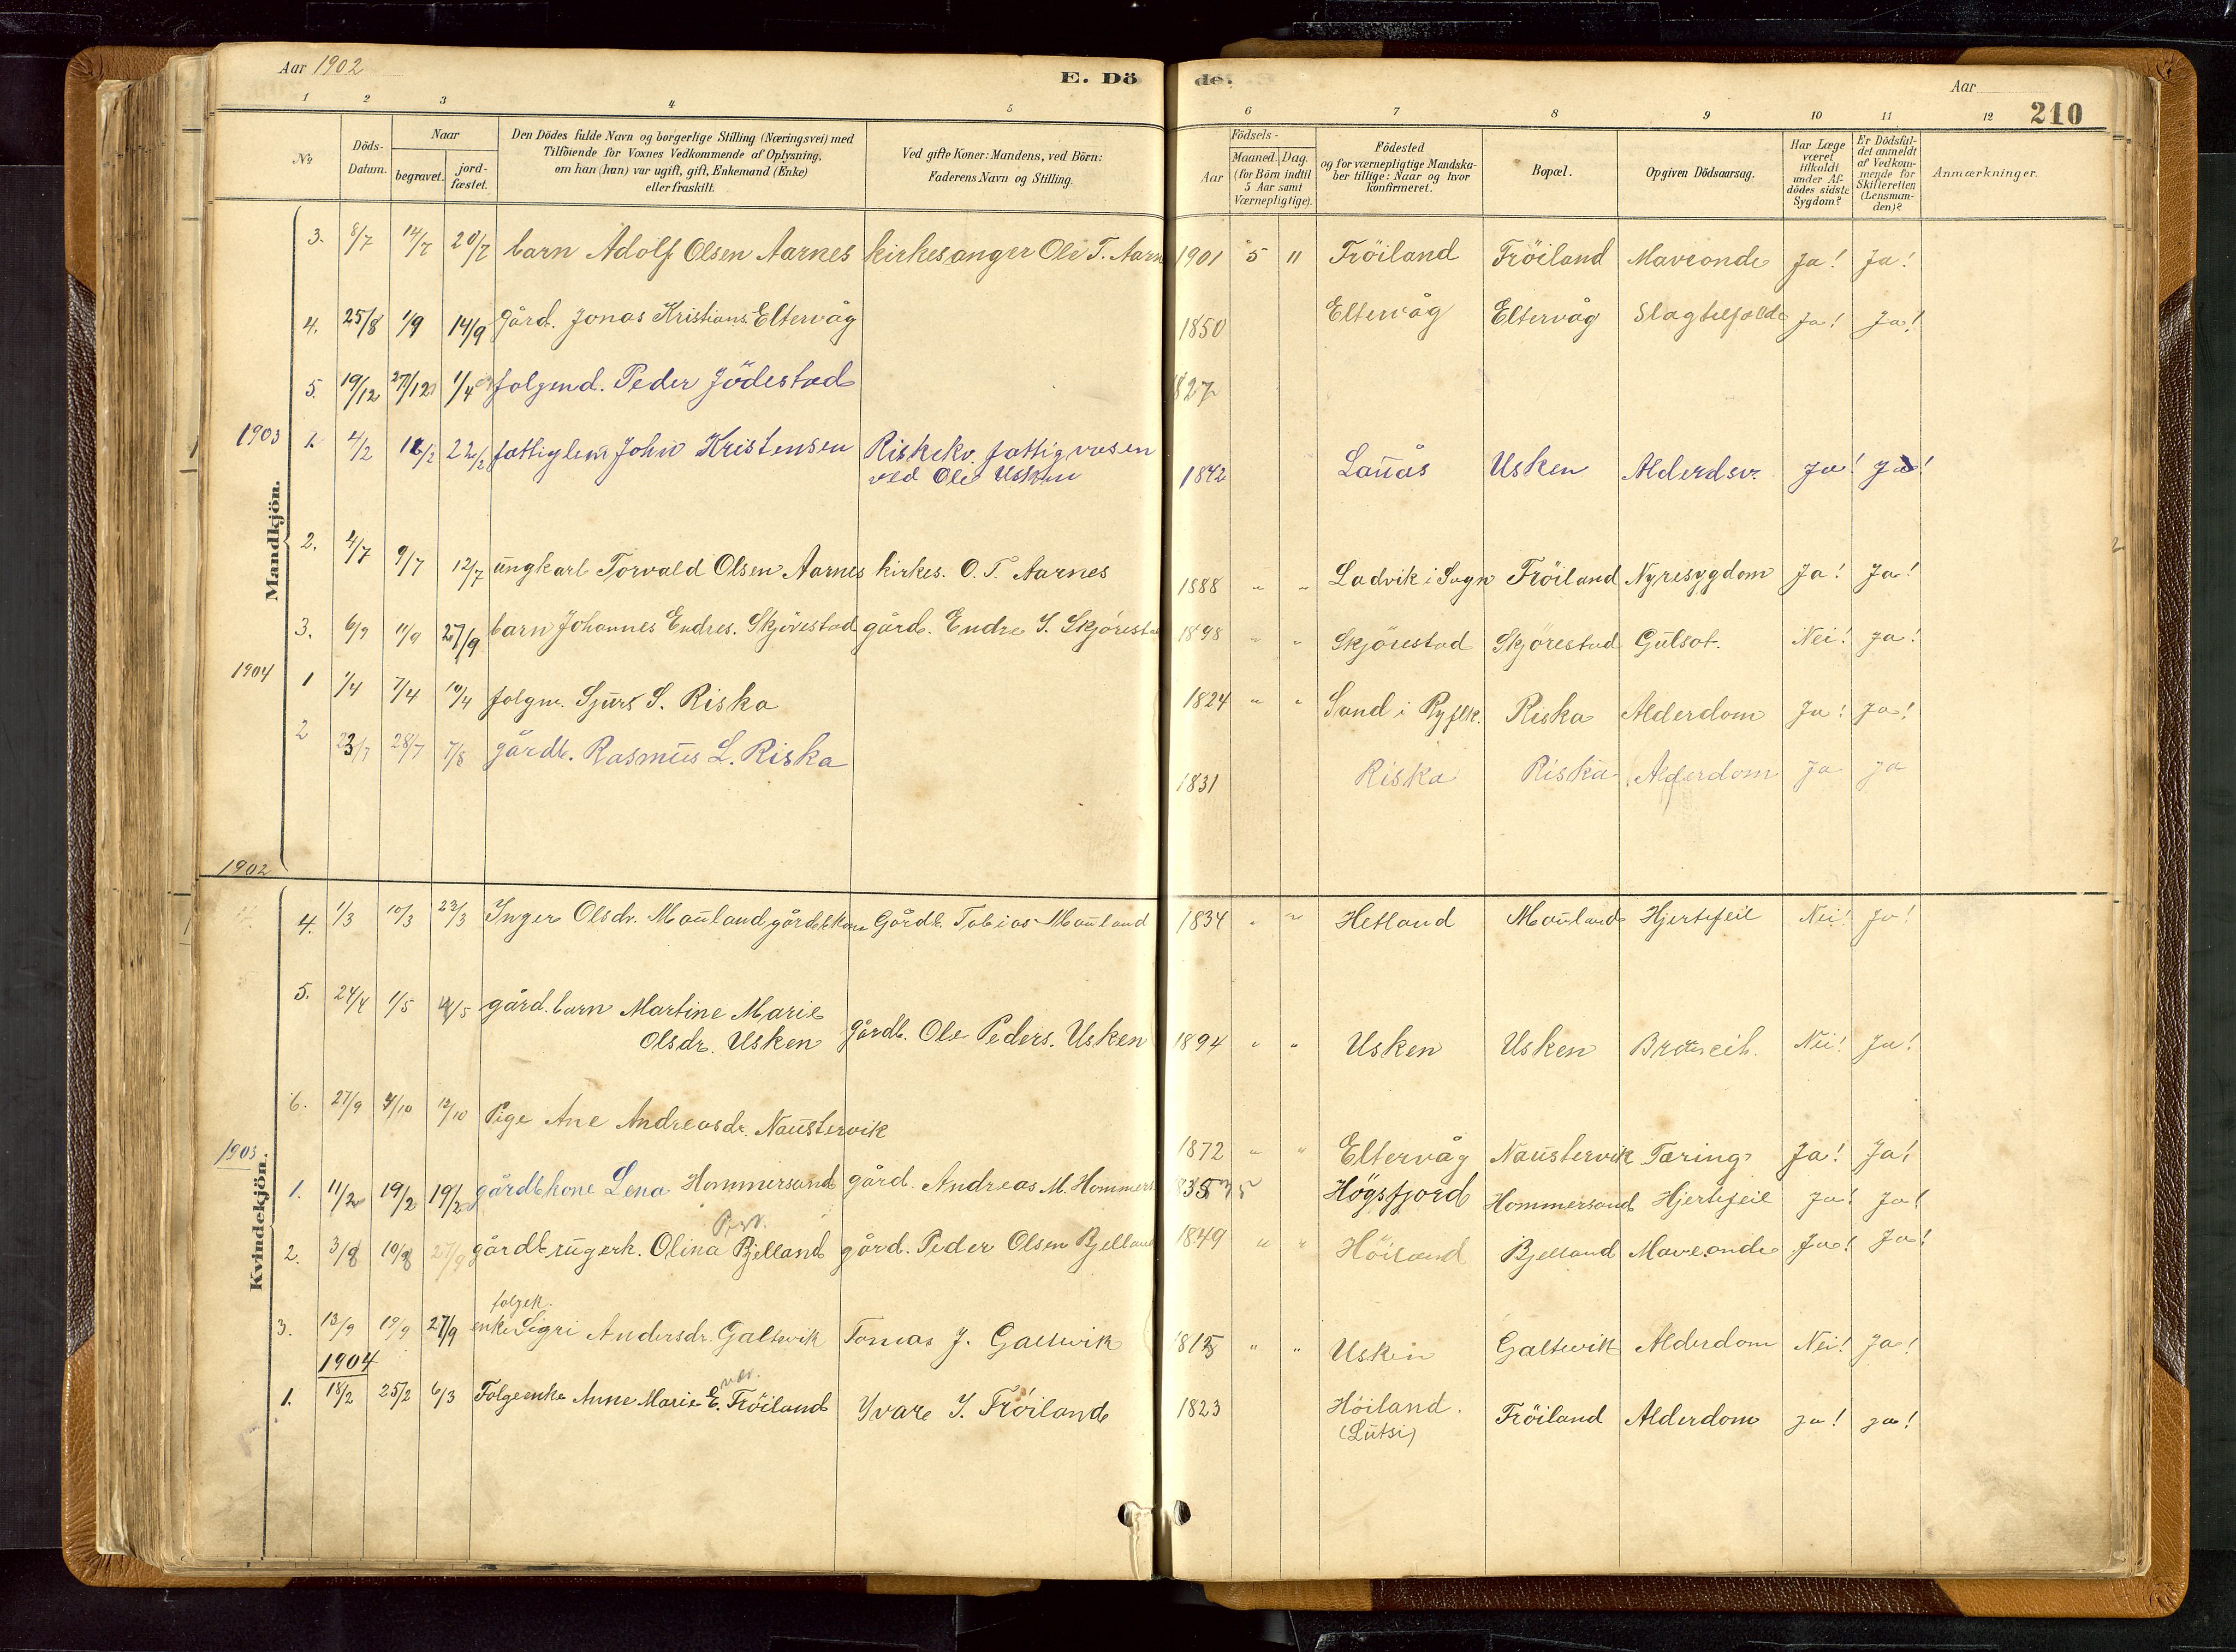 Aar 1902
E. Dö
de.
Aar
210
1 2 3 4 5 6 7 8 9 10 11 12
No
Döds-
Datum.
Naar
begravet.
jord-
fæstet.
Den Dödes fulde Navn og borgerlige Stilling (Næringsvei) med
Tilföiende for Voxnes Vedkommende af Oplysning,
om han (hun) var ugift, gift, Enkemand (Enke)
eller fraskilt.
Ved gifte Koner: Mandens, ved Börn:
Faderens Navn og Stilling.
Födsels-
Aar
Maaned. Dag.
(for Börn indtil
5 Aar samt
Værnepligtige).
Födested
og for værnepligtige Mandska-
ber tillige: Naar og hvor
konfirmeret.
Bopæl.
Opgiven Dödsaarsag.
Har Læge
været
tilkaldt
under Af-
dödes sidste
Sygdom?
Er Dödsfal-
det anmeldt
af Vedkom-
mende for
Skifteretten
(Lensman-
den)?
Anmærkninger.
Mandkjön.
3. 8/7 14/7 20/7 barn Adolf Olsen Aarnes kirkesanger Ole T. Aarn 1901 5 " Tröiland Tröiland Maveonde Ja! Ja!
4. 25/8 1/9 14/9 Gård. Jonas Kristians. Eltervåg 1850 Eltervåg Eltervåg Ja! Ja!
5. 19/12 27/12 1/4 folgmd. Peder Jödestad 1827
1903 1. 4/2 22/2 fattiglem John Kristensen Riskekv. fattigvæsen
ved Ole Usken 1842 Lauås Usken Alderdsv. Ja! Ja!
2. 4/7 9/7 12/7 ungkarl Torvald Olsen Aarnes kirkes. O. T. Aarnes 1888 " " Ladvik i Sogn Tröiland Nyresygdom Ja! Ja!
3. 6/9 11/9 27/9 barn Johannes Endres. Skjörestad gård. Endre S. Skjöresta 1898 " " Skjörestad Skjörestad Gulsot. Nei! Ja!
1904 1 1/4 7/4 10/4 folgm. Sjurs S. Riska 1824 " " Sand i Ryflk. Riska Alderdom Ja! Ja!
2 23/7 28/7 7/8 gårdb. Rasmus L. Riska 1831 Riska Riska Alderdom Ja Ja
1902
Kvindekjön.
4. 1/3 10/3 23/3 Inger Olsdr. Mauland gårdbkone Gårdb. Tobias Mauland 1834 " " Hetland Mauland Hjertefeil Nei! Ja!
5. 24/4 1/5 4/5 gård. barn Martine Marie
Olsdr. Usken Gårdb. Ole Peders. Usken 1894 " " Usken Usken Nei! Ja!
6. 27/9 4/10 12/10 Pige Ane Andreasdr. Naustervik 1872 " " Eltervåg Naustervik Tæring Ja! Ja!
1903 1. 11/2 19/2 19/2 gårdbkone Lena Hommersand gård. Andreas M. Hommers Högsfjord Hommersand Hjertefeil Ja! Ja!
2. 3/8 10/8 27/9 gårdbrugerk. Olina Bjelland gård. Peder Olsen Bjelland 1849 " " Höiland Bjelland Maveonde Ja! Ja!
folgek.
3. 13/9 19/9 27/9 enke Sigri Andersdr. Galtevik Tomas J. Galtevik " " Usken Galtevik Alderdom Nei! Ja!
1904
1. 18/2 25/2 6/3 Folgeenke Anne Marie E. Tröiland Yvare I. Tröiland 1823 Höiland.
(Lutsi) Tröiland Alderdom Ja! Ja!